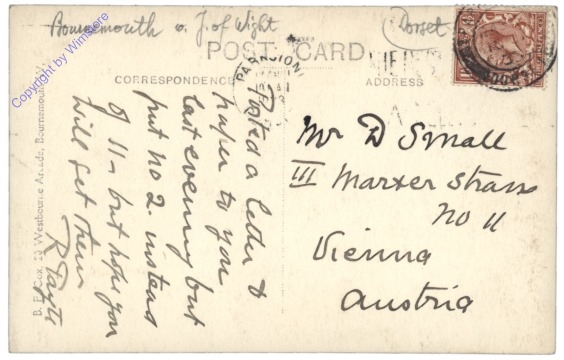 Bournemouth o. J. of Wight
Dorset
POST CARD
PARKSTONE
CORRESPONDENCE
ADDRESS
Posted a letter &
paper to you
last evening but
put no 2. instead
of 11 - but hope you
will get them
R Tayte
Mr D Small
III Marxer Strass
No 11
Vienna
Austria
B. E. Cox, 23 Westbourne Arcade, Bournemouth W.
Copyright by Winstore